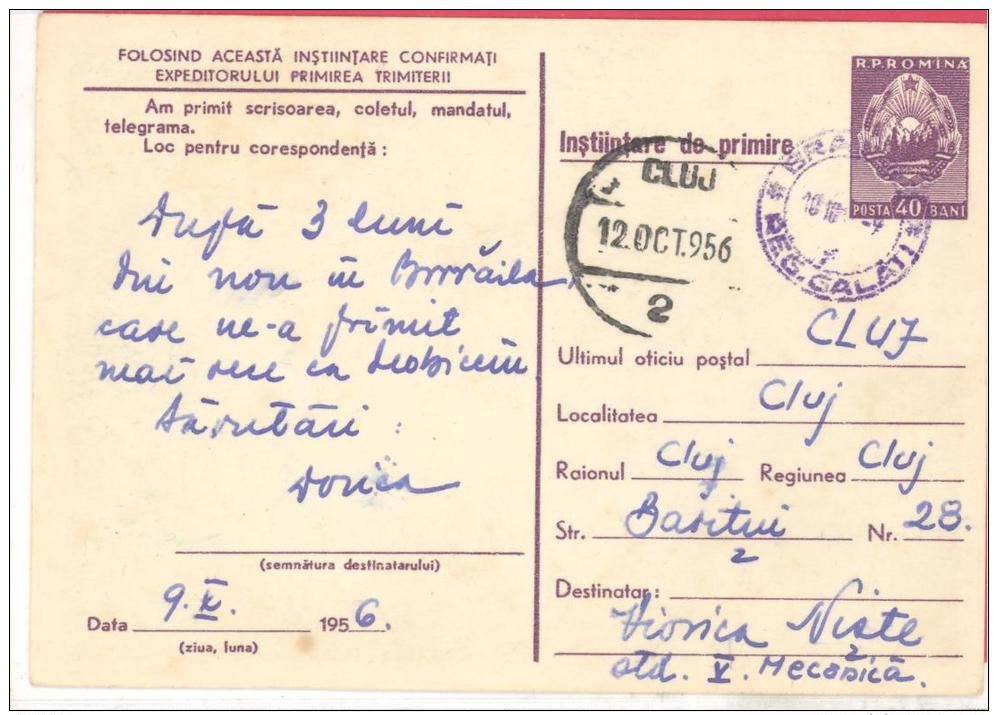 FOLOSIND ACEASTĂ INȘTIINȚARE CONFIRMAȚI
EXPEDITORULUI PRIMIREA TRIMITERII
Am primit scrisoarea, coletul, mandatul,
telegrama.
Loc pentru corespondență :
După 3 luni
din nou în Brrrăila,
care ne-a primit
mai rece ca deobicein
Sărutări :
Dorica
(semnătura destinatarului)
Data 9. X. 1956.
(ziua, luna)
R.P.ROMÎNĂ
POSTA 40 BANI
Inștiințare de primire
REG. GALAȚI
CLUJ
12.OCT.956
2
Ultimul oficiu poștal CLUJ
Localitatea Cluj
Raionul Cluj Regiunea Cluj
Str. Barițiu Nr. 28.
Destinatar :
Viorica Niște
std. V. Mecanică.